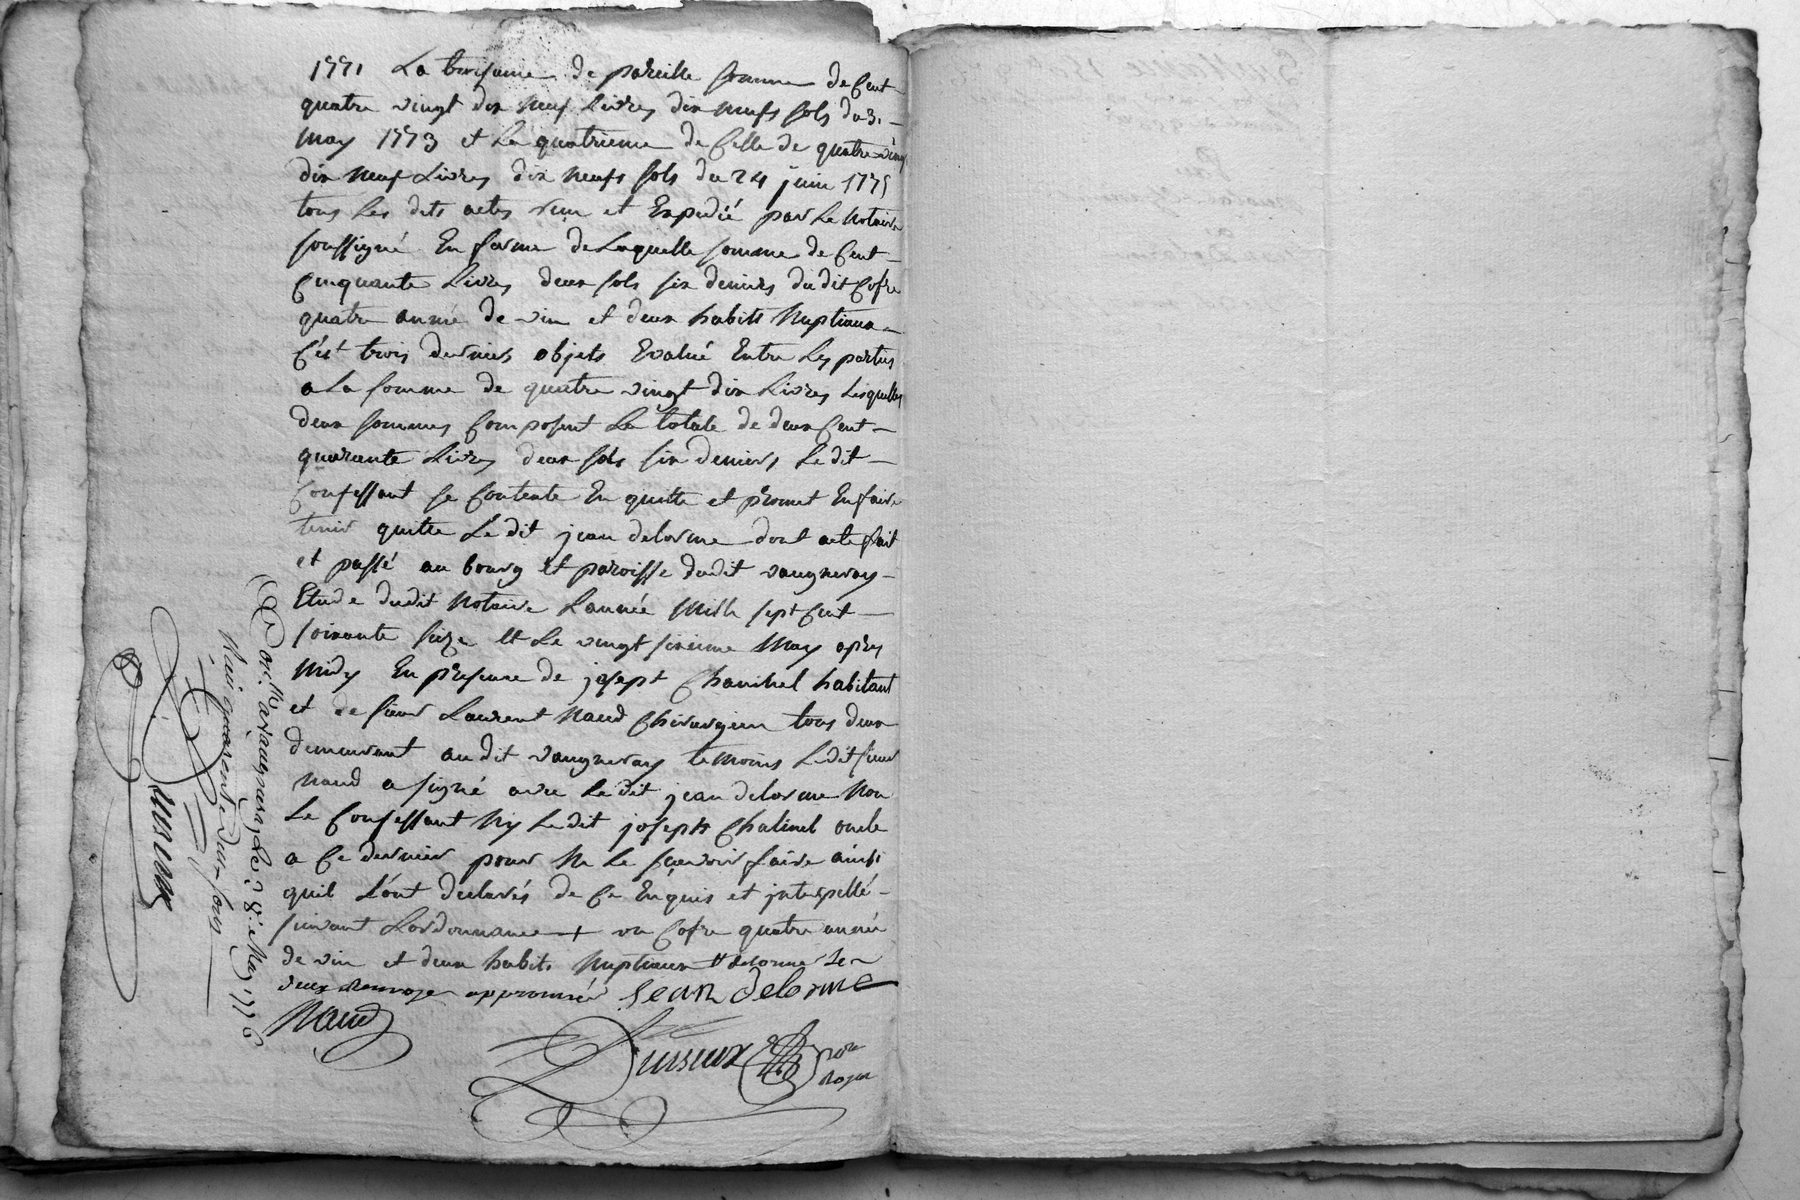 1771 La troisieme de pareille somme de Cent
quatre vingt dix neuf Livres dix neufs sols du 3.
may 1773 et La quatrieme de Celle de quatre vingt
dix neuf Livres dix neufs sols du 24 juin 1775
tous Les dits actes reçu et Expedié par Le Notaire
soussigné En forme de Laquelle somme de Cent
Cinquante Livres deux sols six deniers dudit Cofre
quatre année de vin et deux habits Nuptiaux
C'est trois derniers objets Evalué Entre Les parties
a La somme de quatre vingt dix Livres Lesquelles
deux sommes Composent La totale de deux Cent
quarante Livres deux sols six deniers Le dit
Confessant se Contente En quitte et promet En faire
tenir quitte Le dit jean delorme dont acte fait
et passé au bourg et paroisse dudit vaugneray
Etude dudit Notaire L'année Mille sept Cent
soixante seize et Le vingt sixieme May apres
Midy En presence de josept habitant
et de sieur Laurent Naud Chirurgien tous deux
demeurant audit vaugneray temoins Ledit sieur
Naud a signé avec Le dit jean delorme Non
Le Confessant Ny Le dit joseph oncle
a Ce dernier pour Ne Le sçavoir faire ainsi
quil L'ont declarés de Ce Enquis et interpellé
suivant L'ordonnance + un Cofre quatre année
de vin et deux habits Nuptiaux
renvoye approuvée jean delorme
Naud
Dussieux
Not. Royal
Con.lé a vaugneray Le 28. May 1776
Reçu quarente deux sous
Dussieux